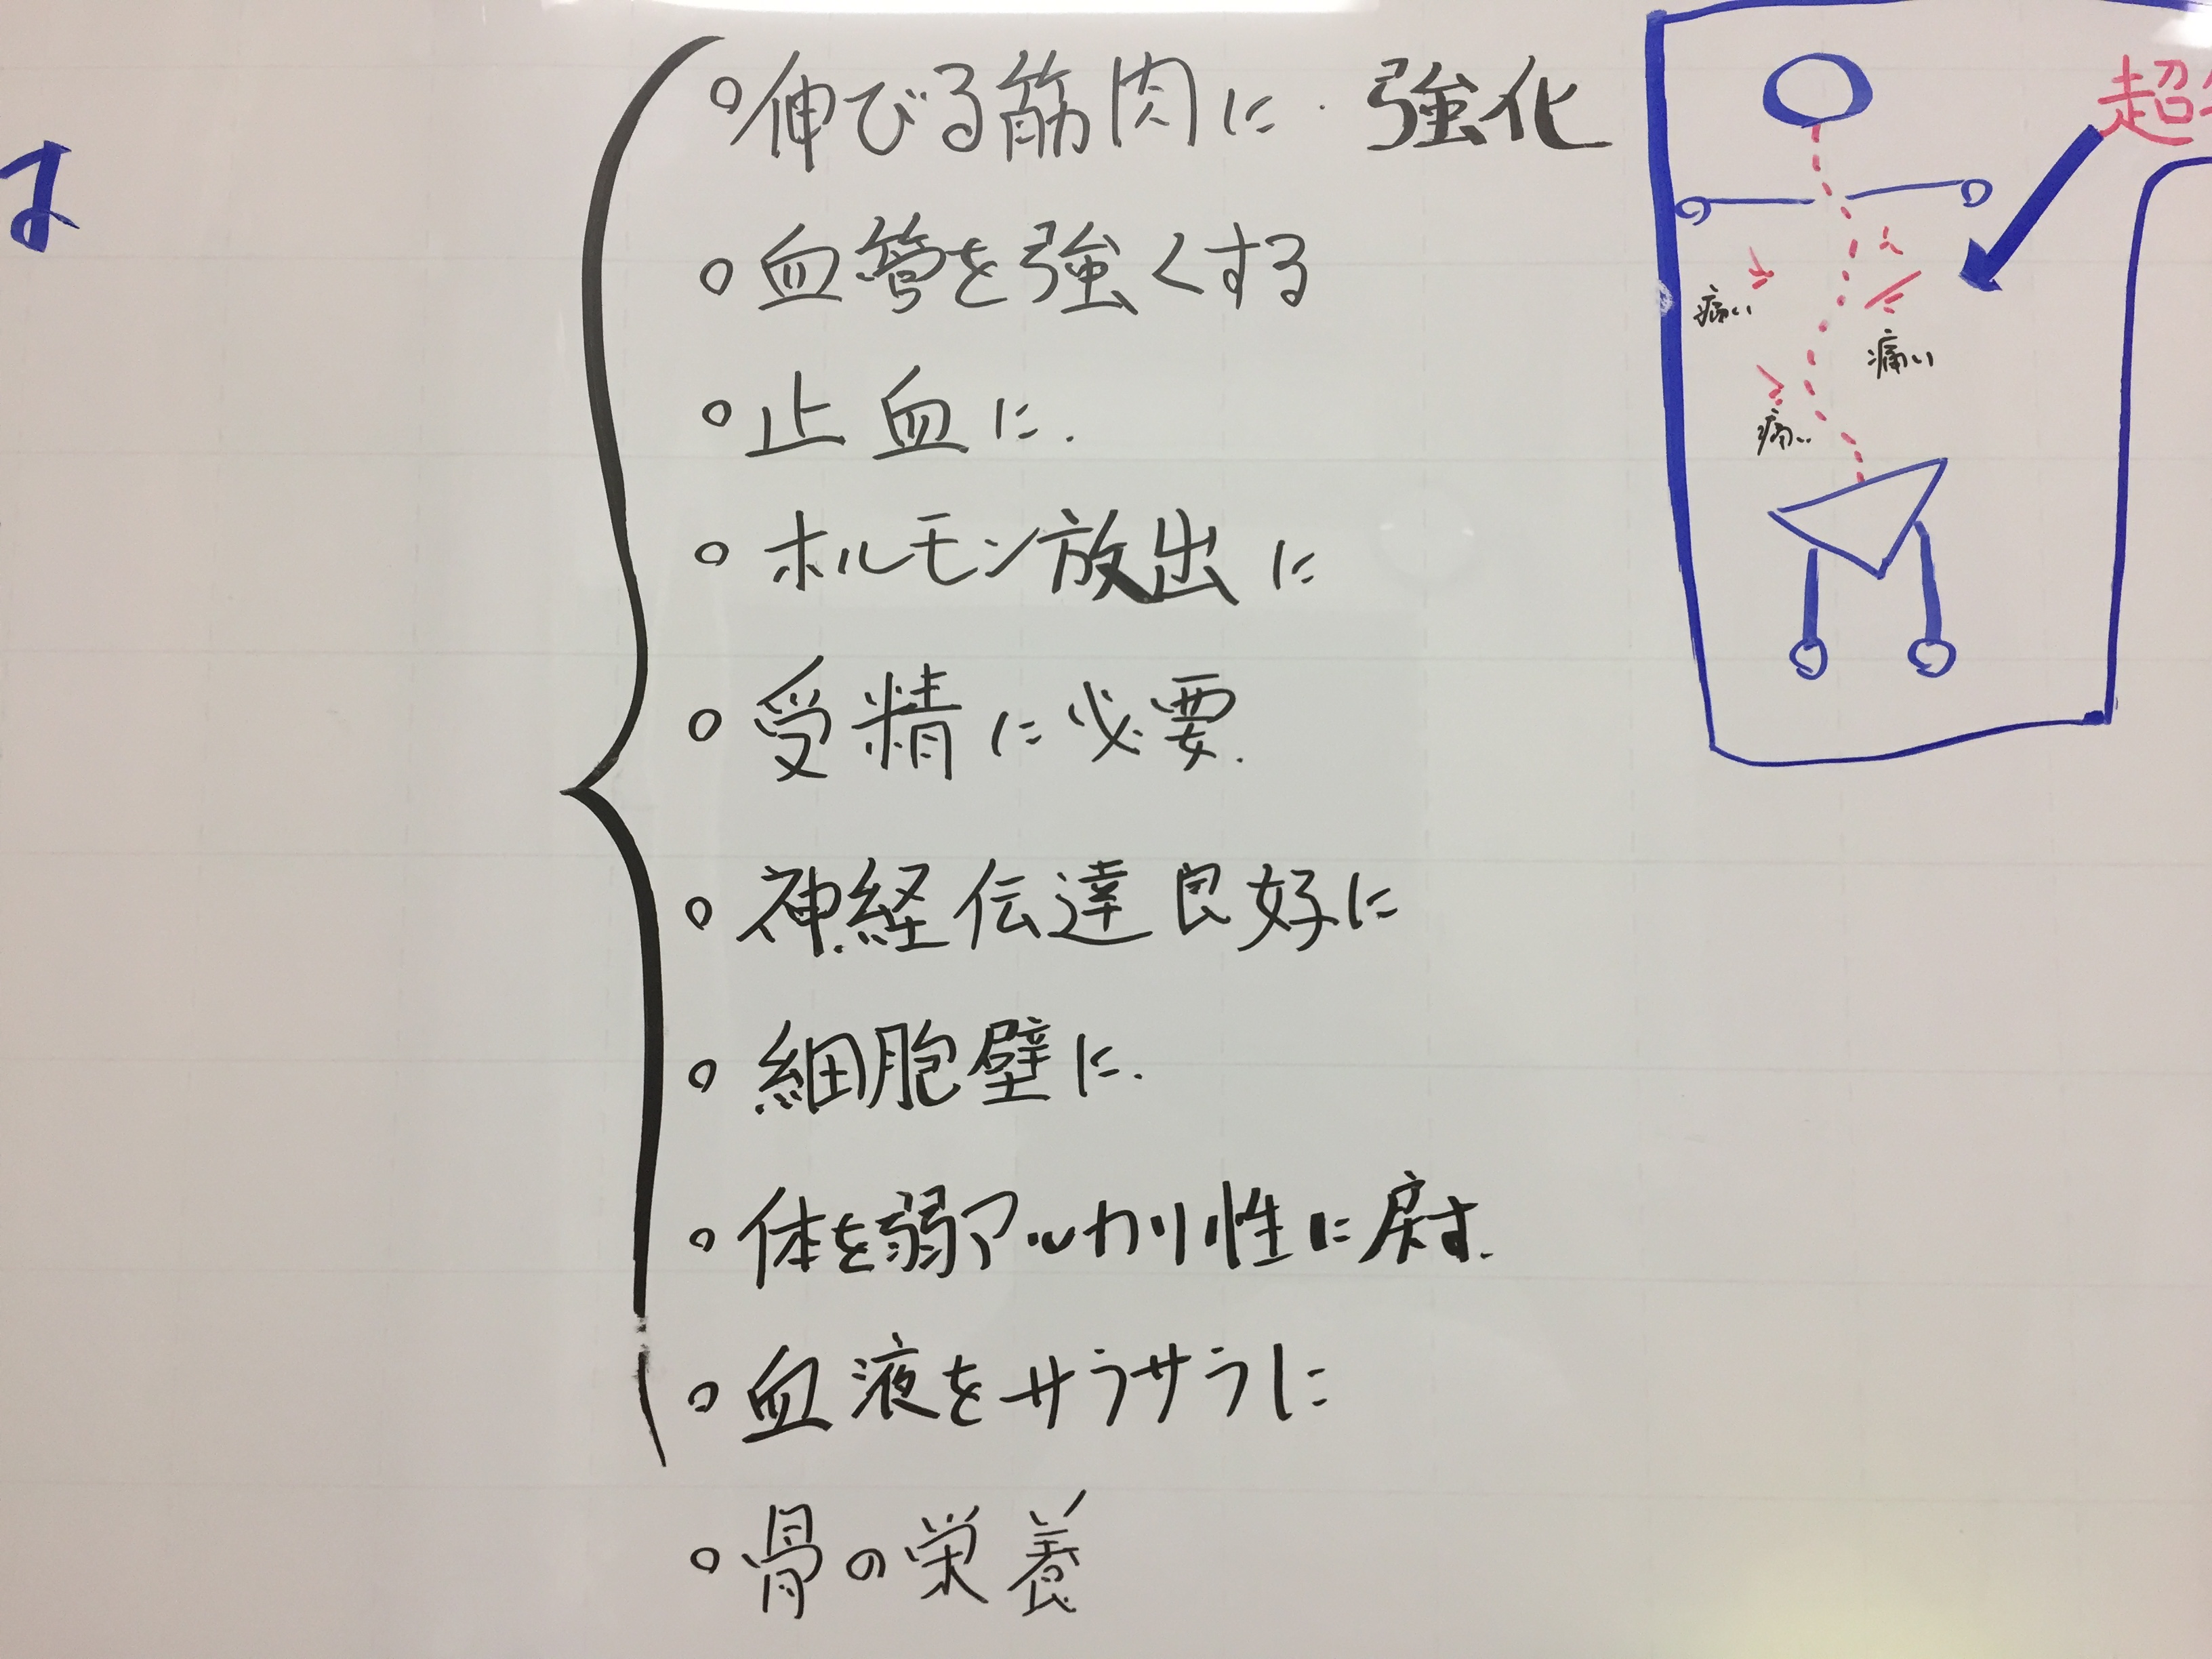 は
伸びる筋肉に・強化
血管を強くする
止血に.
ホルモン放出に
受精に必要.
神経伝達良好に
細胞壁に.
体を弱アルカリ性に戻す.
血液をサラサラに
骨の栄養
超
痛い
痛い
痛い